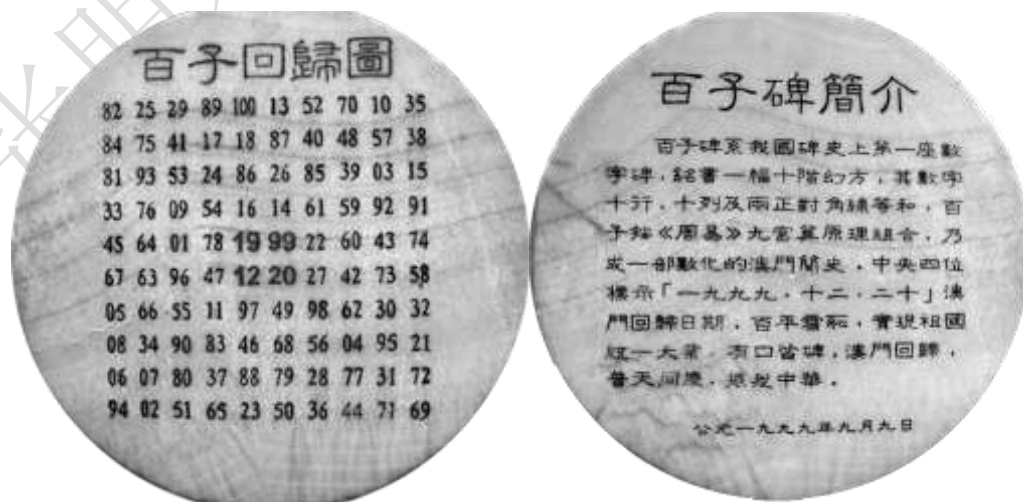 百子回歸圖
82 25 29 89 100 13 52 70 10 35
84 75 41 17 18 87 40 48 57 38
81 93 53 24 86 26 85 39 03 15
33 76 09 54 16 14 61 59 92 91
45 64 01 78 19 99 22 60 43 74
67 63 96 47 12 20 27 42 73 58
05 66 55 11 97 49 98 62 30 32
08 34 90 83 46 68 56 04 95 21
06 07 80 37 88 79 28 77 31 72
94 02 51 65 23 50 36 44 71 69
百子碑簡介
百子碑系我國碑史上第一座數
字碑，銘書一幅十階幻方，其數字
十行，十列及兩正對角線等和，百
子《周易》九宮算原理組合，乃
成一部數化的澳門簡史，中央四位
標示「一九九九·十二·二十」澳
門回歸日期，百年雪恥，實現祖國
統一大業，有口皆碑，澳門回歸，
普天同慶，振我中華。
公元一九九九年九月九日